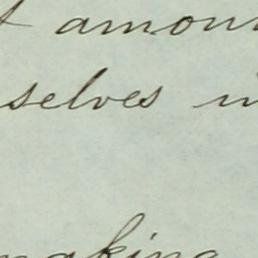 t amoun
selves in
making